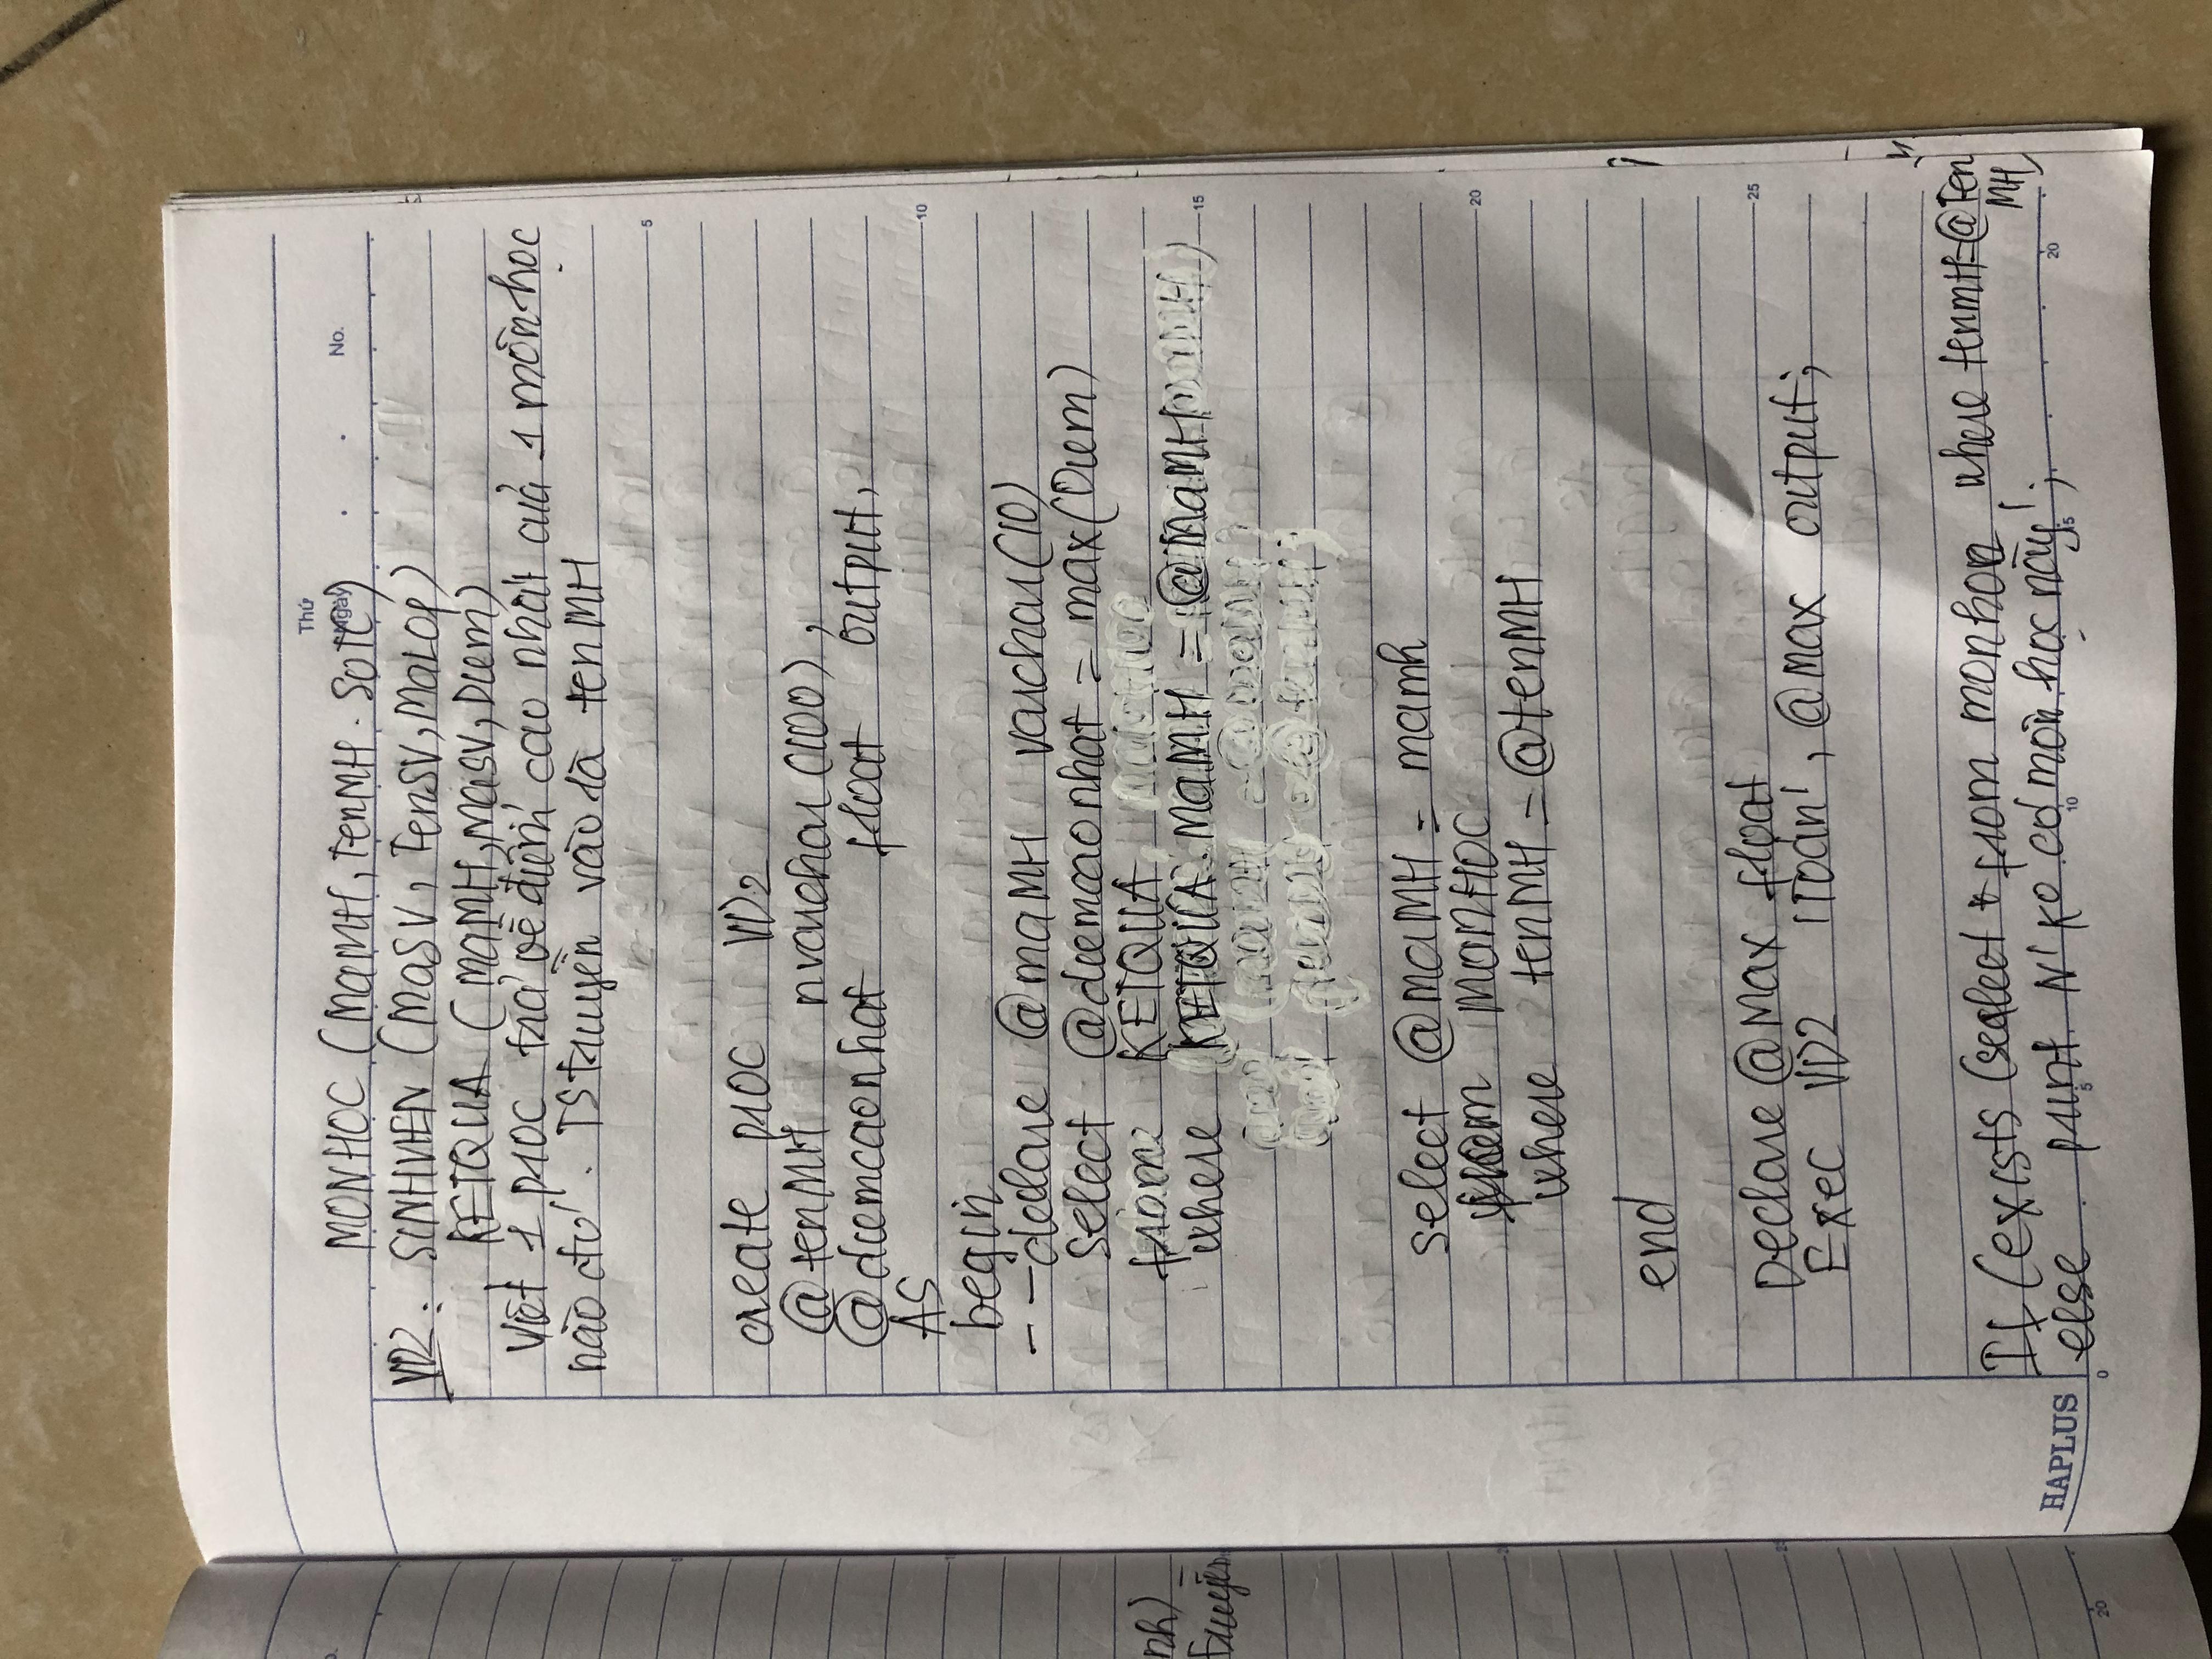 Thứ
Ngày
No.
MONHOC (MaMH, TenMH. SOTC)
VD2: SINHVIEN (MaSV, TenSV, MaLop)
KETQUA (MaMH, MaSV, Diem)
Viết 1 proc trả về điểm cao nhất của 1 môn học
nào đó. TS truyền vào là tenMH
5
create proc VD2
@tenMH nvarchar(100),
@diemcaonhat float output,
AS
10
begin
--declare @maMH varchar(10)
select @diemcaonhat = max(Diem)
from KETQUA
where KETQUA.MaMH = @MaMH
15
select @maMH = mamh
from MONHOC
20
where tenMH = @tenMH
end
Declare @Max float
25
Exec VD2 'Toán', @max output;
If (exists (seqlect * from monhon where tenmH=@Ten
MH)
else print N'ko có môn học này';
HAPLUS
0 5 10 15 20
nh)
truyền
20